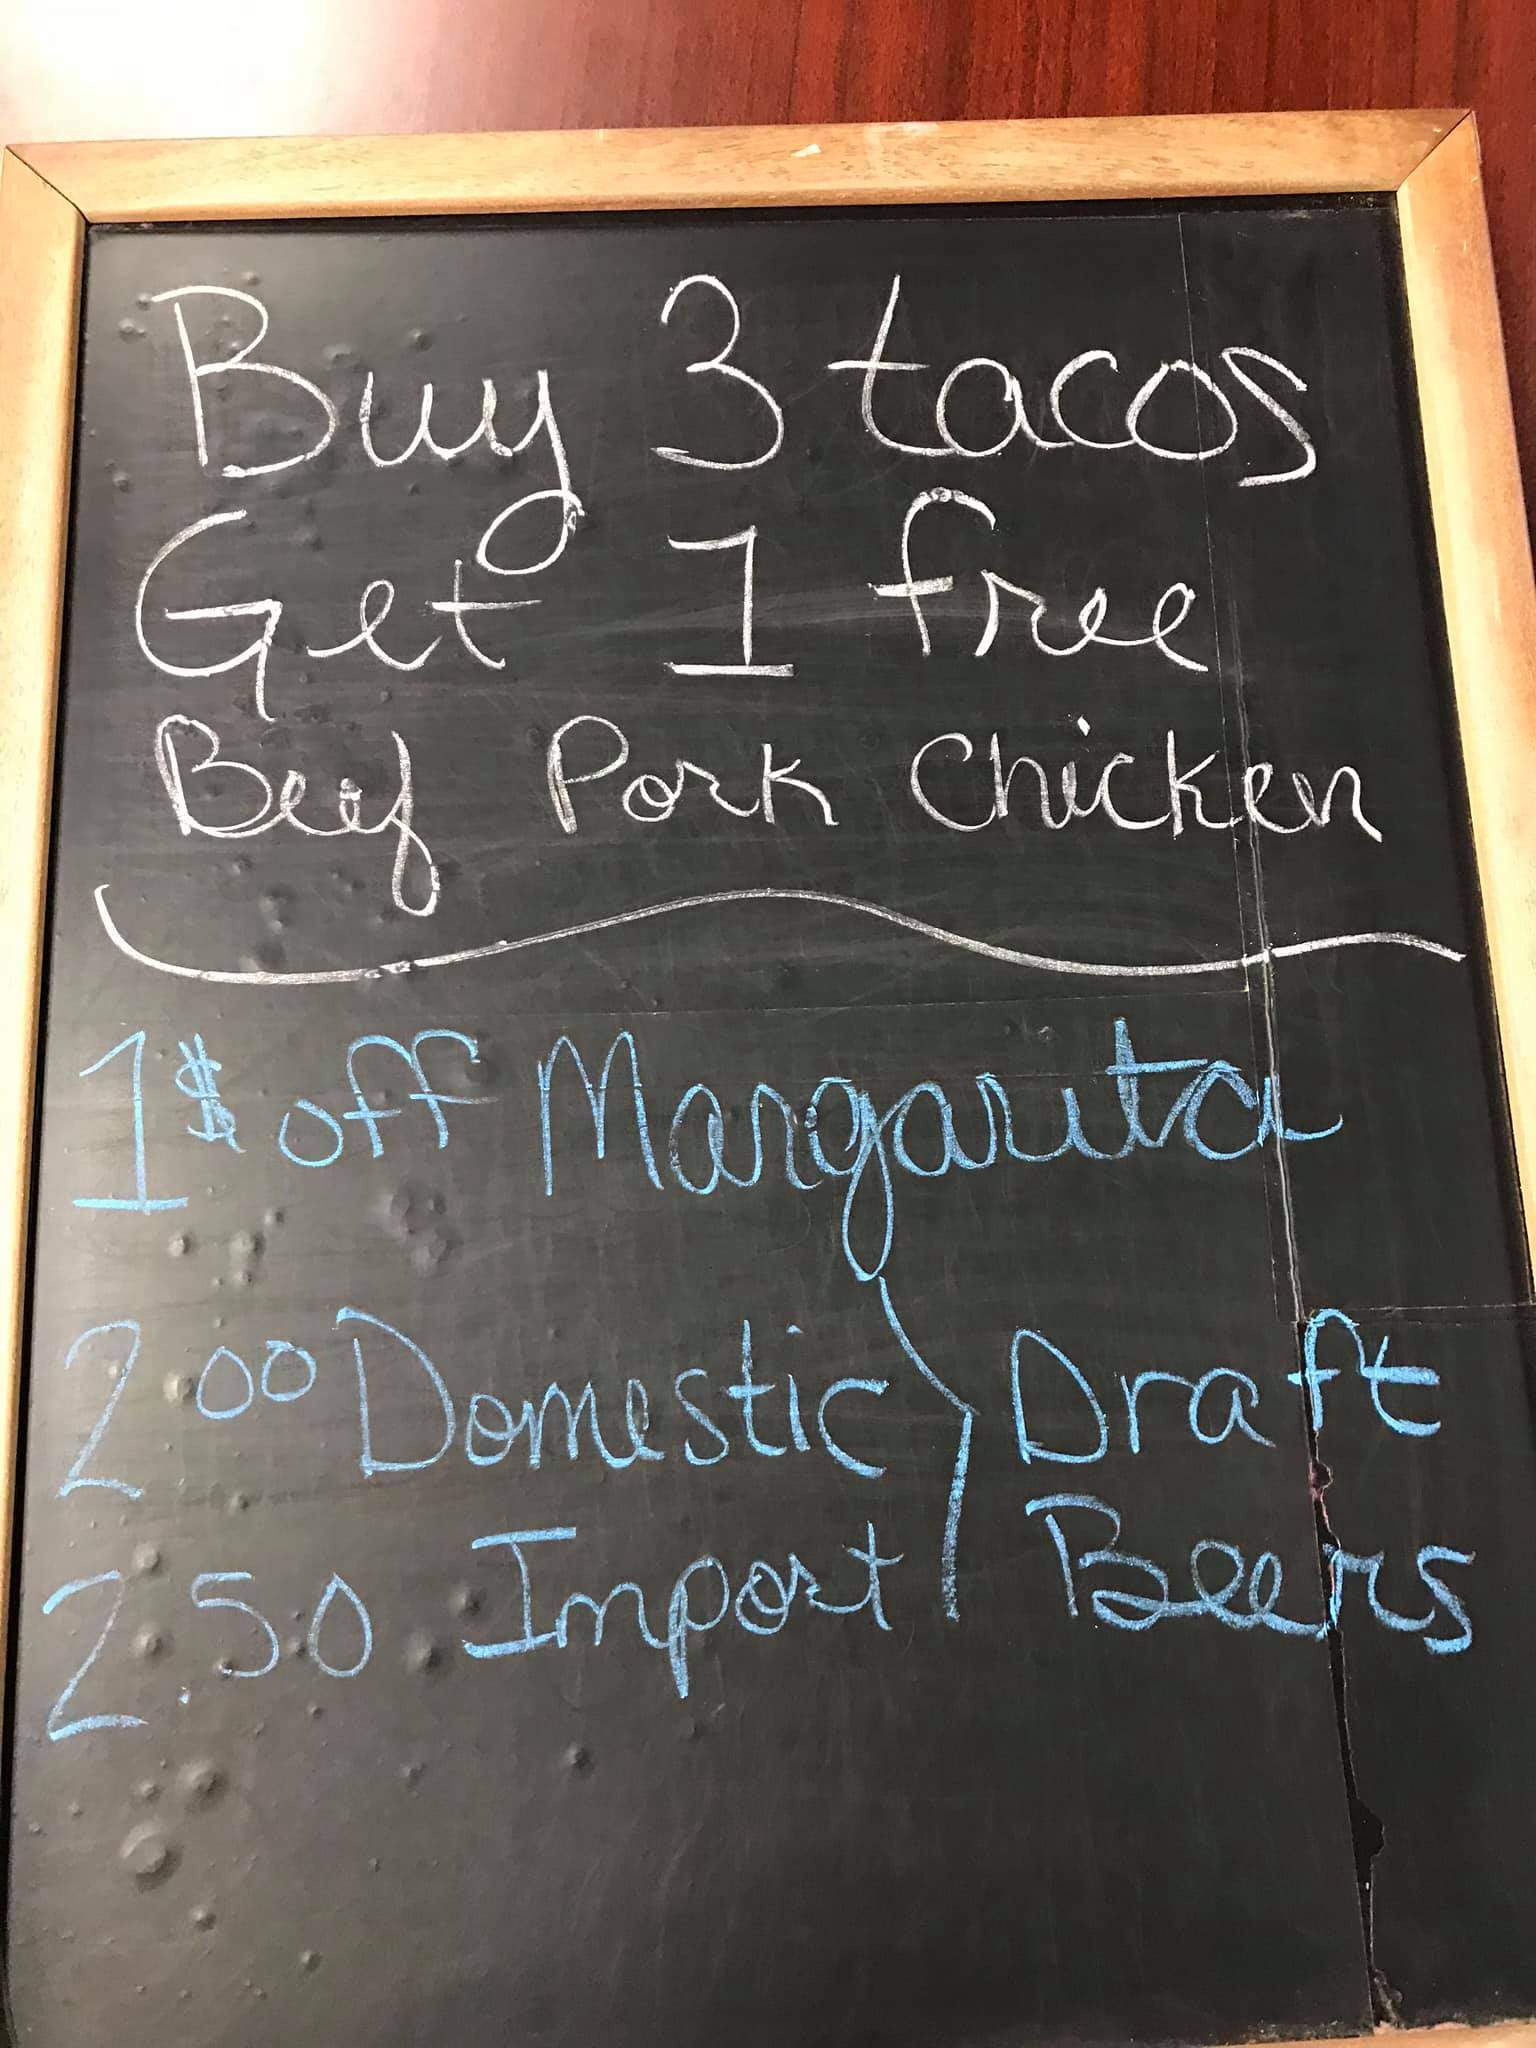 Buy 3 tacos
Get 1 free
Beef Pork Chicken
1$ off Margarita
2.00 Domestic } Draft
2.50 Import } Beers